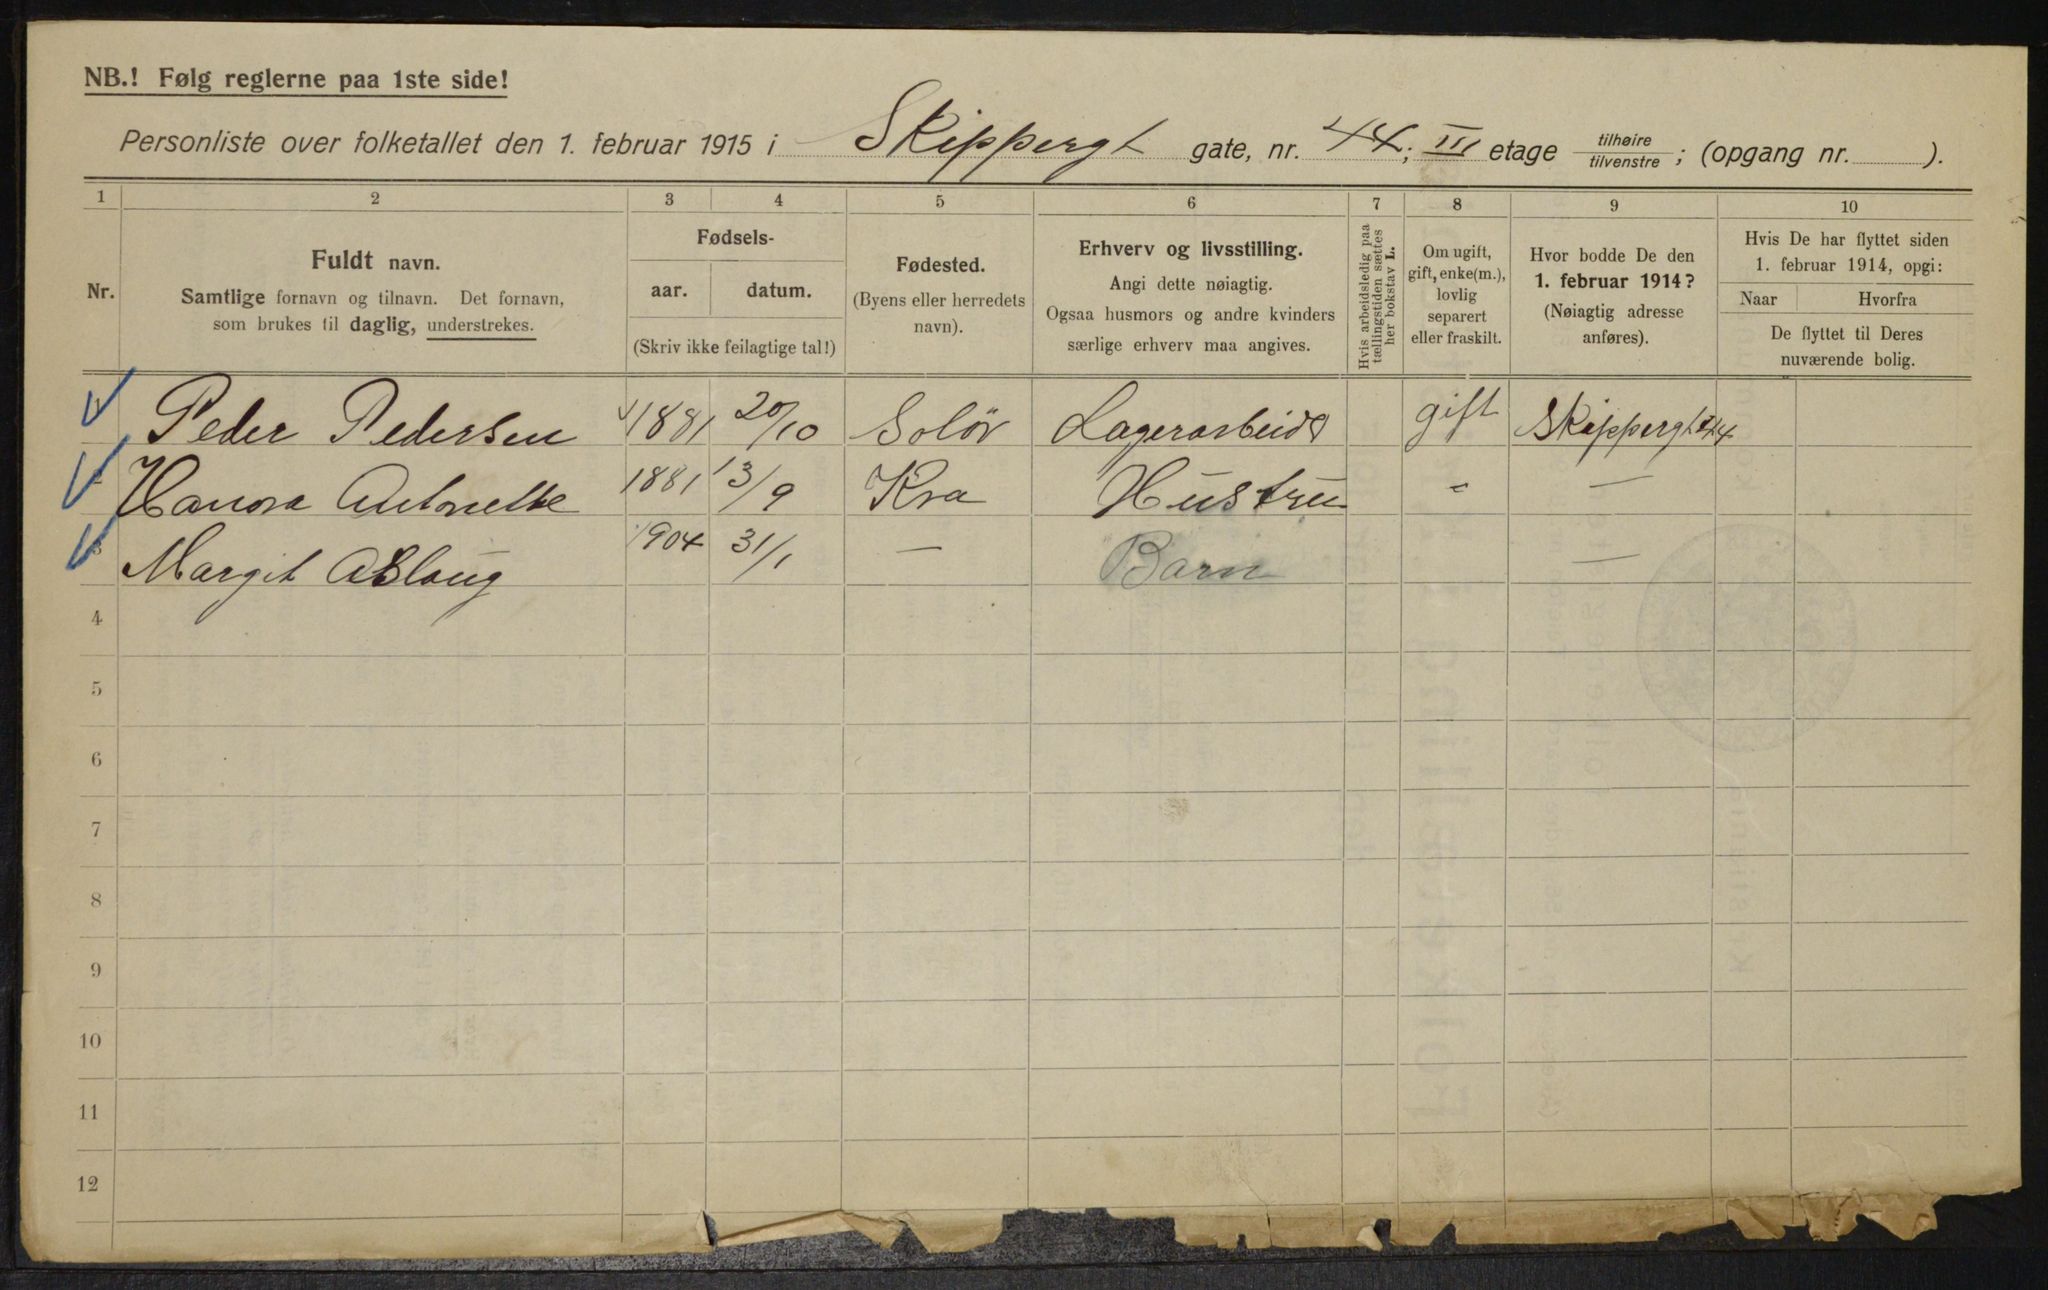 NB.! Følg reglerne paa 1ste side!
Personliste over folketallet den 1. februar 1915 i Skippergt gate, nr. 44; III etage tilhøire/tilvenstre; (opgang nr. ).
1 2 3 4 5 6 7 8 9 10
Nr.
Fuldt navn.
Samtlige fornavn og tilnavn. Det fornavn,
som brukes til daglig, understrekes.
Fødsels-
aar. datum.
(Skriv ikke feilagtige tal!)
Fødested.
(Byens eller herredets
navn).
Erhverv og livsstilling.
Angi dette nøiagtig.
Ogsaa husmors og andre kvinders
særlige erhverv maa angives.
Hvis arbeidsledig paa
tællingstiden sættes
her bokstav L.
Om ugift,
gift, enke(m.),
lovlig
separert
eller fraskilt.
Hvor bodde De den
1. februar 1914?
(Nøiagtig adresse
anføres).
Hvis De har flyttet siden
1. februar 1914, opgi:
Naar Hvorfra
De flyttet til Deres
nuværende bolig.
1 Peder Pedersen 1881 20/10 Solör Lagerarbeider gift Skippergt 44
2 Hanora Antonette 1881 13/9 Kra Hustru " —
3 Margit Aslaug 1904 31/1 — Barn —
4
5
6
7
8
9
10
11
12